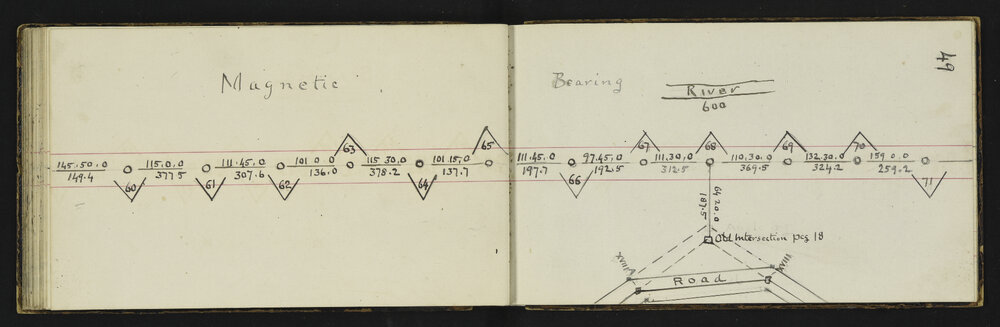 Magnetic Bearing
49
River
600
63 65 67 68 69 70
145.50.0 115.0.0 111.45.0 101 0 0 115 30.0 101 15.0 111.45.0 97.45.0 111.30.0 110.30.0 132.30.0 159 0.0
149.4 377.5 307.6 136.0 378.2 137.7 197.7 192.5 312.5 369.5 324.2 259.2
60 61 62 64 66 71
64 20.0
187.5
Old Intersection pag 18
XVIIA XVIII
Road